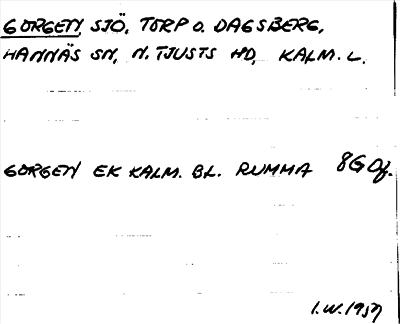 GORGEN, SJÖ, TORP O. DAGSBERG,
HANNÄS SN, N. TJUSTS HD, KALM. L.
GORGEN EK KALM. BL. RUMMA 8G Df.
I.W. 1957